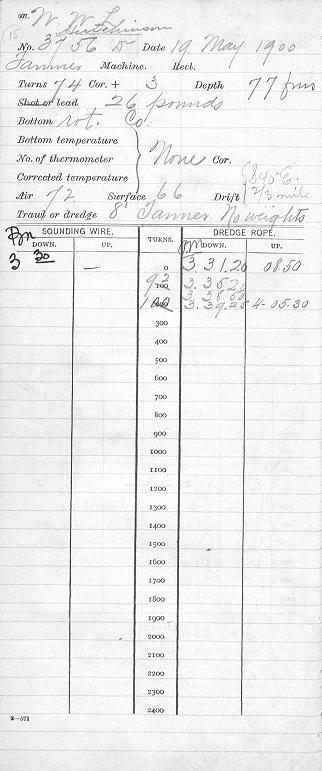 W. W. L.
(15) Hutchinson
No. 3756 D Date 19 May 1900
Tanner Machine. Reel.
Turns 74 Cor. + 3 Depth 77 fms
Shot or lead 26 pounds
Bottom rot. Co
Bottom temperature
No. of thermometer None Cor.
Corrected temperature
Air 72 Surface 66 Drift 2/3 mile
Trawl or dredge 8' Tanner. No weights
Pm SOUNDING WIRE. TURNS. Pm DREDGE ROPE.
DOWN. UP. DOWN. UP.
3 30 — 0 3 31.20 08.50
92 100 3.35.2
3.38.50
100 3.39.25 4-05.30
300
400
500
600
700
800
900
1000
1100
1200
1300
1400
1500
1600
1700
1800
1900
2000
2100
2200
2300
2400
2—571